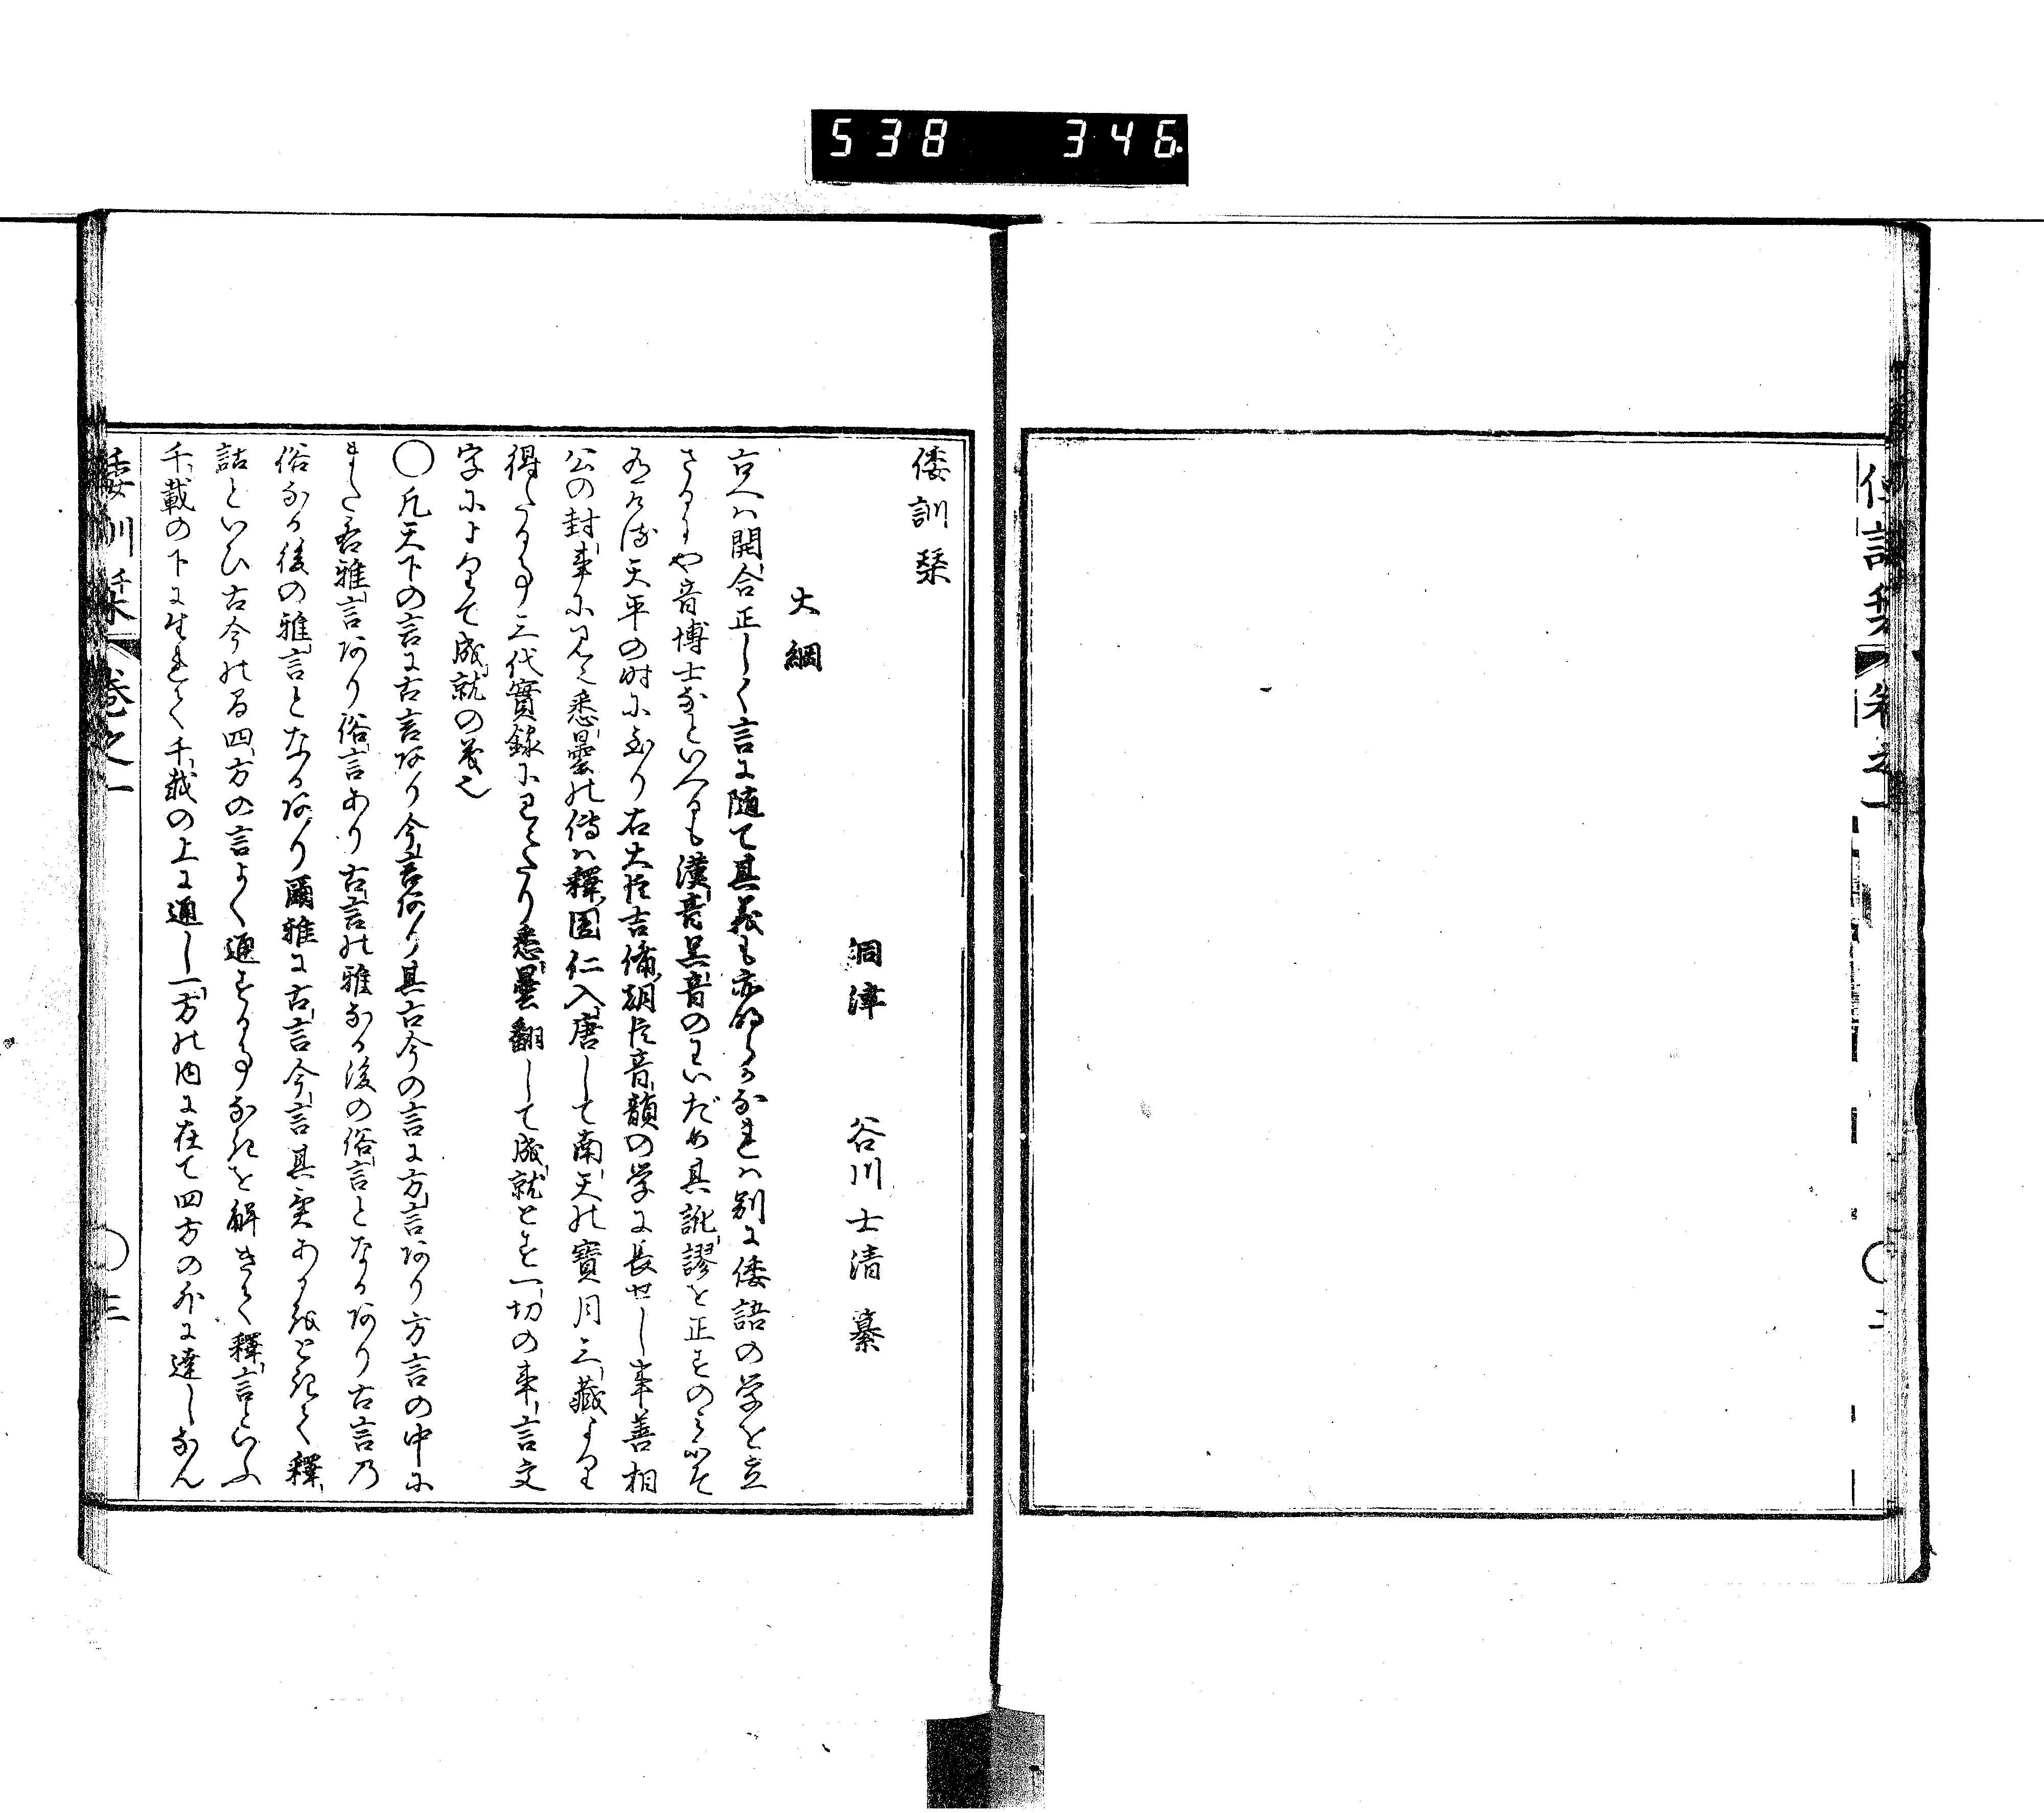 538 346
倭訓栞 卷之一 ○二
倭訓栞
洞津 谷川士清纂
大綱
古へは開合正しく言に随て其義も亦明らかなれは別に倭語の学を立
さるにや音博士なといへるも漢音呉音のわいため其訛謬を正すのみにそ
有ける天平の時に至り右大臣吉備朝臣音韻の学に長せし事善相
公の封事に見え悉曇の傳は釋圓仁入唐して南天の寶月三藏より
得たる事三代實録にみえたり悉曇翻して成就とす一切の事言文
字によりて成就の義也
○凡天下の言に古言あり今言あり其古今の言に方言あり方言の中に
また各雅言あり俗言あり古言の雅なる後の俗言となるあり古言乃
俗なる後の雅言となるあり爾雅に古言今言其実ある故をときて釋
詁といひ古今のる四方の言よく通する事なきを解きて釋言といふ
千載の下に生れて千載の上に通し一方の内に在て四方の外に達しなん
倭訓栞 卷之一 ○三